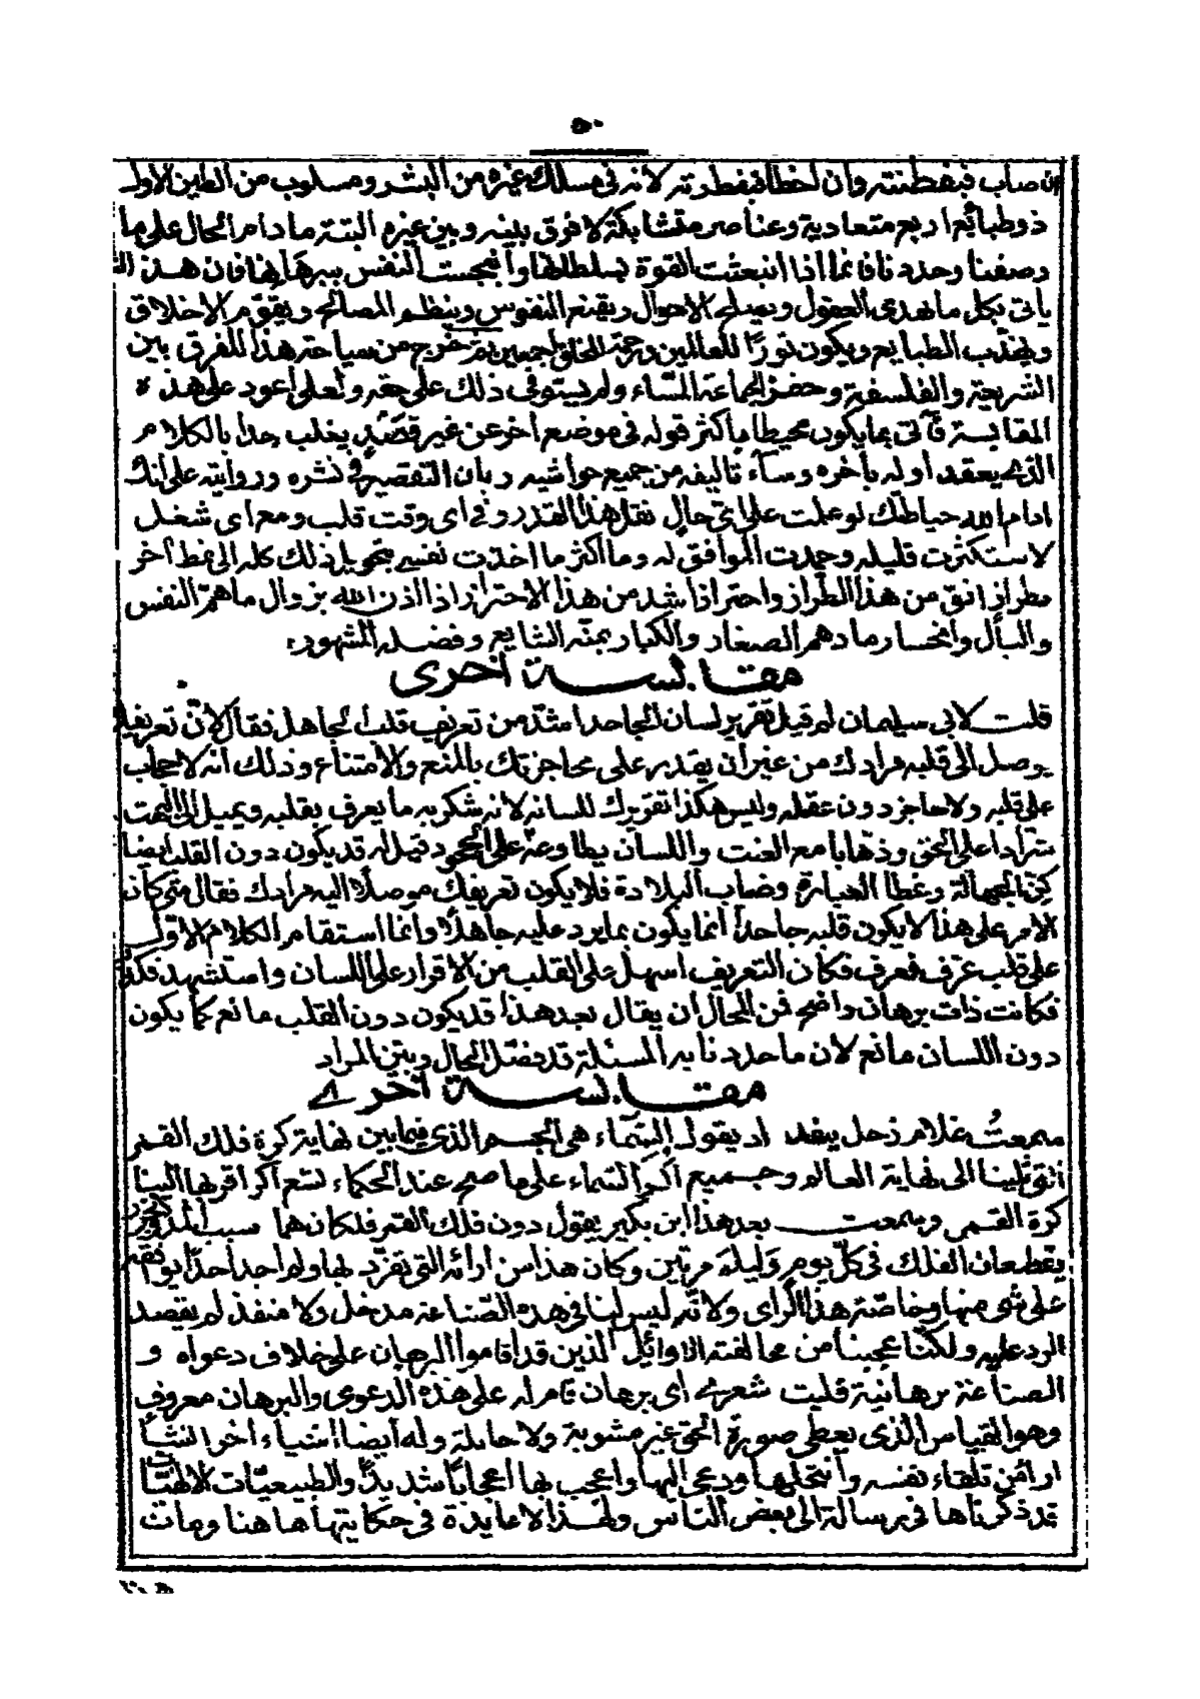 ٥٠
ان صاب فبفطنته وان اخطا فبفطرته لانه فى مسلك غيره من البشر ومسلوب من الطين الاول
ذو طبائع اربع متعادية وعناصر متشابكة لا فرق بينه وبين غيره البتة ما دام الحال على ما
وصفنا وحددنا فانما اذا انبعثت القوة بسلطانها وانبجست النفس ببرهانها فان هذا
ياتى بكل ما يهدى العقول ويصلح الاحوال ويقنع النفوس وينظم المصالح ويقوم الاخلاق
ويهذب الطبايع ويكون نورًا للعالمين ورحمة للخلق اجمعين ثم خرج من مسياحته هذا للفرق بين
الشريعة والفلسفة وحضر الجماعة المشاء ولم يستوفى ذلك على حقه ولعلى اعود على هذه
المقايسة فآتى بما يكون محيطا باكثر قوله فى موضع اخر عن غير قصد يغلب جدا بالكلام
الذى يعقد اوله باخره وساء تاليفه من جميع حواشيه وبان التقصير فى نشره وروايته على انك
ادام الله حياطتك لو علمت على اى حال نقل هذا القدر وفى اى وقت قلب ومع اى شغل
لاستكثرت قليله وحمدت الموافق له وما اكثر ما اخذت نفسى بتحويل ذلك كله الى نمط آخر
بطراز انق من هذا الطراز واحتراز اشد من هذا الاحتراز اذا اذن الله بزوال ما هم النفس
والبال وانحسار ما دهم الصغار والكبار بمنه الشايع وفضله المشهود
مقابسة اخرى
قلت لابى سليمان لم قيل تقرير لسان الجاحد اشد من تعريف قلب الجاهل فقال لان تعريفك
يوصل الى قلبه مرادك من غير ان يقدر على محاجزتك بالمنع والامتناع وذلك انه لا حجاب
على قلبه ولا حاجز دون عقله وليس هكذا تقريرك للسانه لانه شكر به ما يعرف بقلبه ويميل الى البهت
متراداعلى الحق وذهابا مع العنت واللسان يطاوعه على الجحود قيل له قد يكون دون القلب ايضا
كن الجهالة وغطا الغباوة وضباب البلادة فلا يكون تعريفك موصلا اليه مرادك فقال متى كان
الامر على هذا لا يكون قلبه جاحدا انما يكون بما يرد عليه جاهلا وانما استقام الكلام الاول
على قلب عرف فعرف فكان التعريف اسهل على القلب من الاقرار على اللسان واستشهد
فكانت ذات برهان واضح فمن المحال ان يقال بعد هذا قد يكون دون القلب مانع كما يكون
دون اللسان مانع لان ما حددنا به المسئلة قد فصل الحال وبين المراد
مقابسة اخرى
سمعت غلام زحل يقول السماء هى الجسم الذى فيما بين نهاية كرة فلك القمر
التى تلينا الى نهاية العالم وجميع اكر السماء على ما صح عند الحكماء تسع اكر اقربها الينا
كرة القمر وسمعت بعد هذا ابن بكير يقول دون فلك القمر فلكان هما سبب المد والجزر
يقطعان الفلك فى كل يوم وليلة مرتين وكان هذا من ارائه التى تفرد بها ولم اجد احدًا يوافقه
على شى منها وخاصة هذا الراى ولانه ليس لنا فى هذه الصناعة مدخل ولا منفذ لم يقصد
الرد عليه ولكنا عجبنا من مخالفته الاوائل الذين قد اقاموا البرهان على خلاف دعواه و
الصناعة برهانية فليت شعرى اى برهان قام له على هذه الدعوى والبرهان معروف
وهو القياس الذى يعطى صورة الحق غير مشوبة ولا حايلة وله ايضا اشياء اخر انشأ
اراءً من تلقاء نفسه وانتحلها ودعى اليها واعجب بها اعجابا شديدًا والطبيعيات الالهيات
قد ذكرناها فى رسالة الى بعض الناس ولهذا لا فايدة فى حكايتها هاهنا ومات